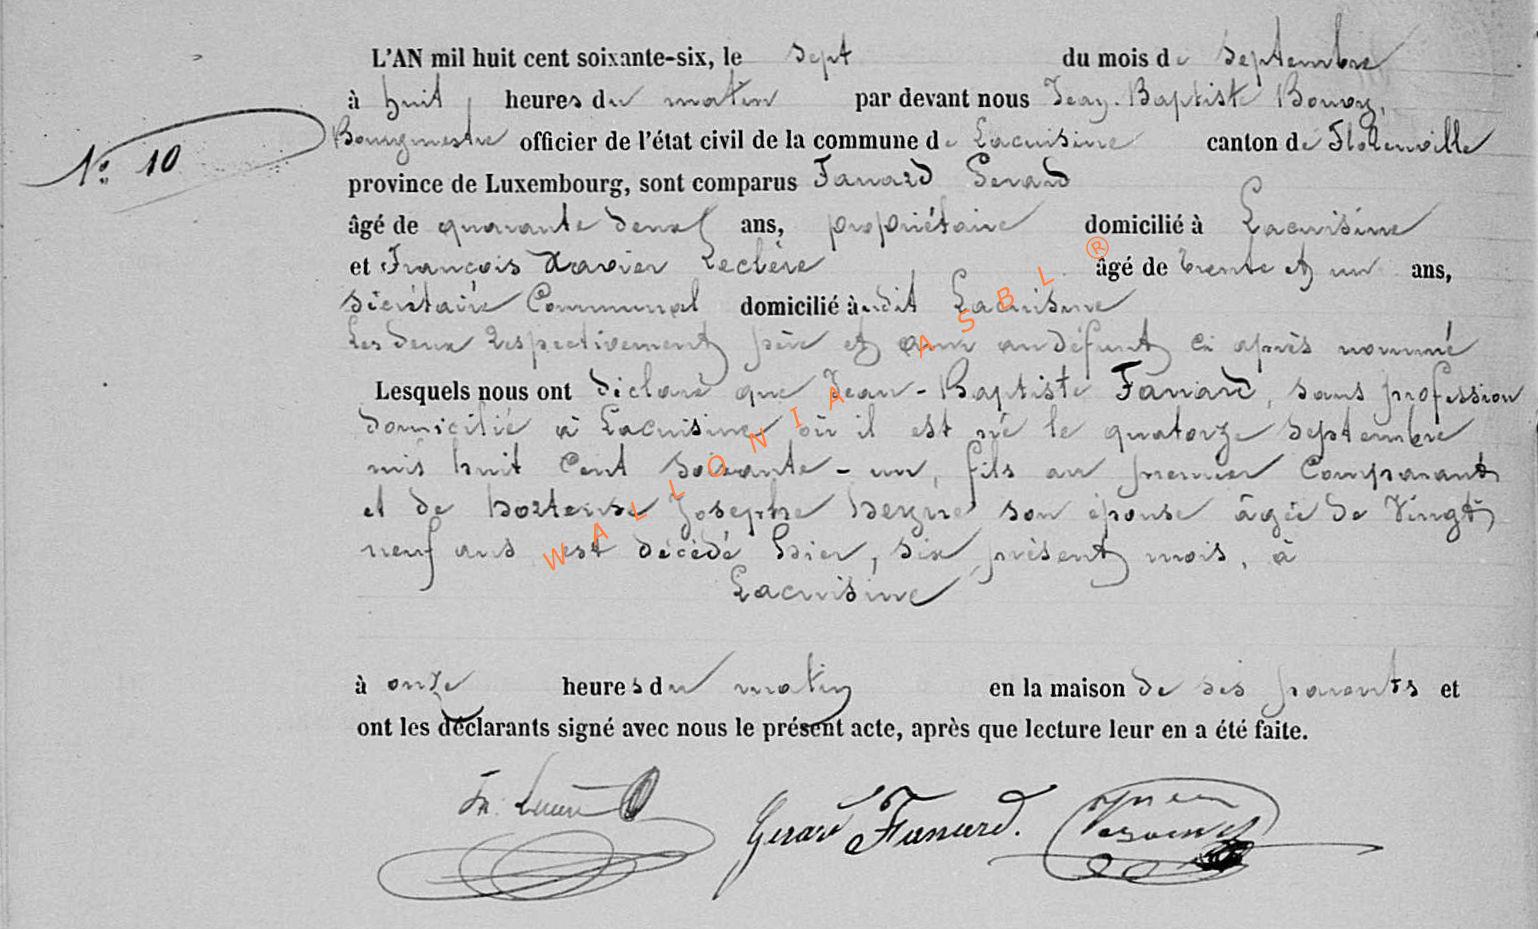 L'AN mil huit cent soixante-six, le sept du mois de septembre
à huit heures du matin par devant nous Jean-Baptiste
N° 10
Bourgmestre officier de l'état civil de la commune de Lacuisine canton de Florenville
province de Luxembourg, sont comparus Fanard Gerard
âgé de quarante deux ans, propriétaire domicilié à Lacuisine
et François Xavier Leclère âgé de trente et un ans,
sécrétaire Communal domicilié à udit Lacuisine
Les deux respectivement père et ami au défunt ci après nommé
Lesquels nous ont déclaré que Jean-Baptiste Fanard, sans profession
domicilié à Lacuisine où il est né le quatorze septembre
mis huit Cent soixante-un, fils au premier Comparant
et de hortense Josephe son épouse âgée de Vingt
neuf ans est décédé hier, six présent mois, à
Lacuisine
à onze heures du matin en la maison de ses parents et
ont les déclarants signé avec nous le présent acte, après que lecture leur en a été faite.
Gerard Fanard.
WALLONIA ASBL ®